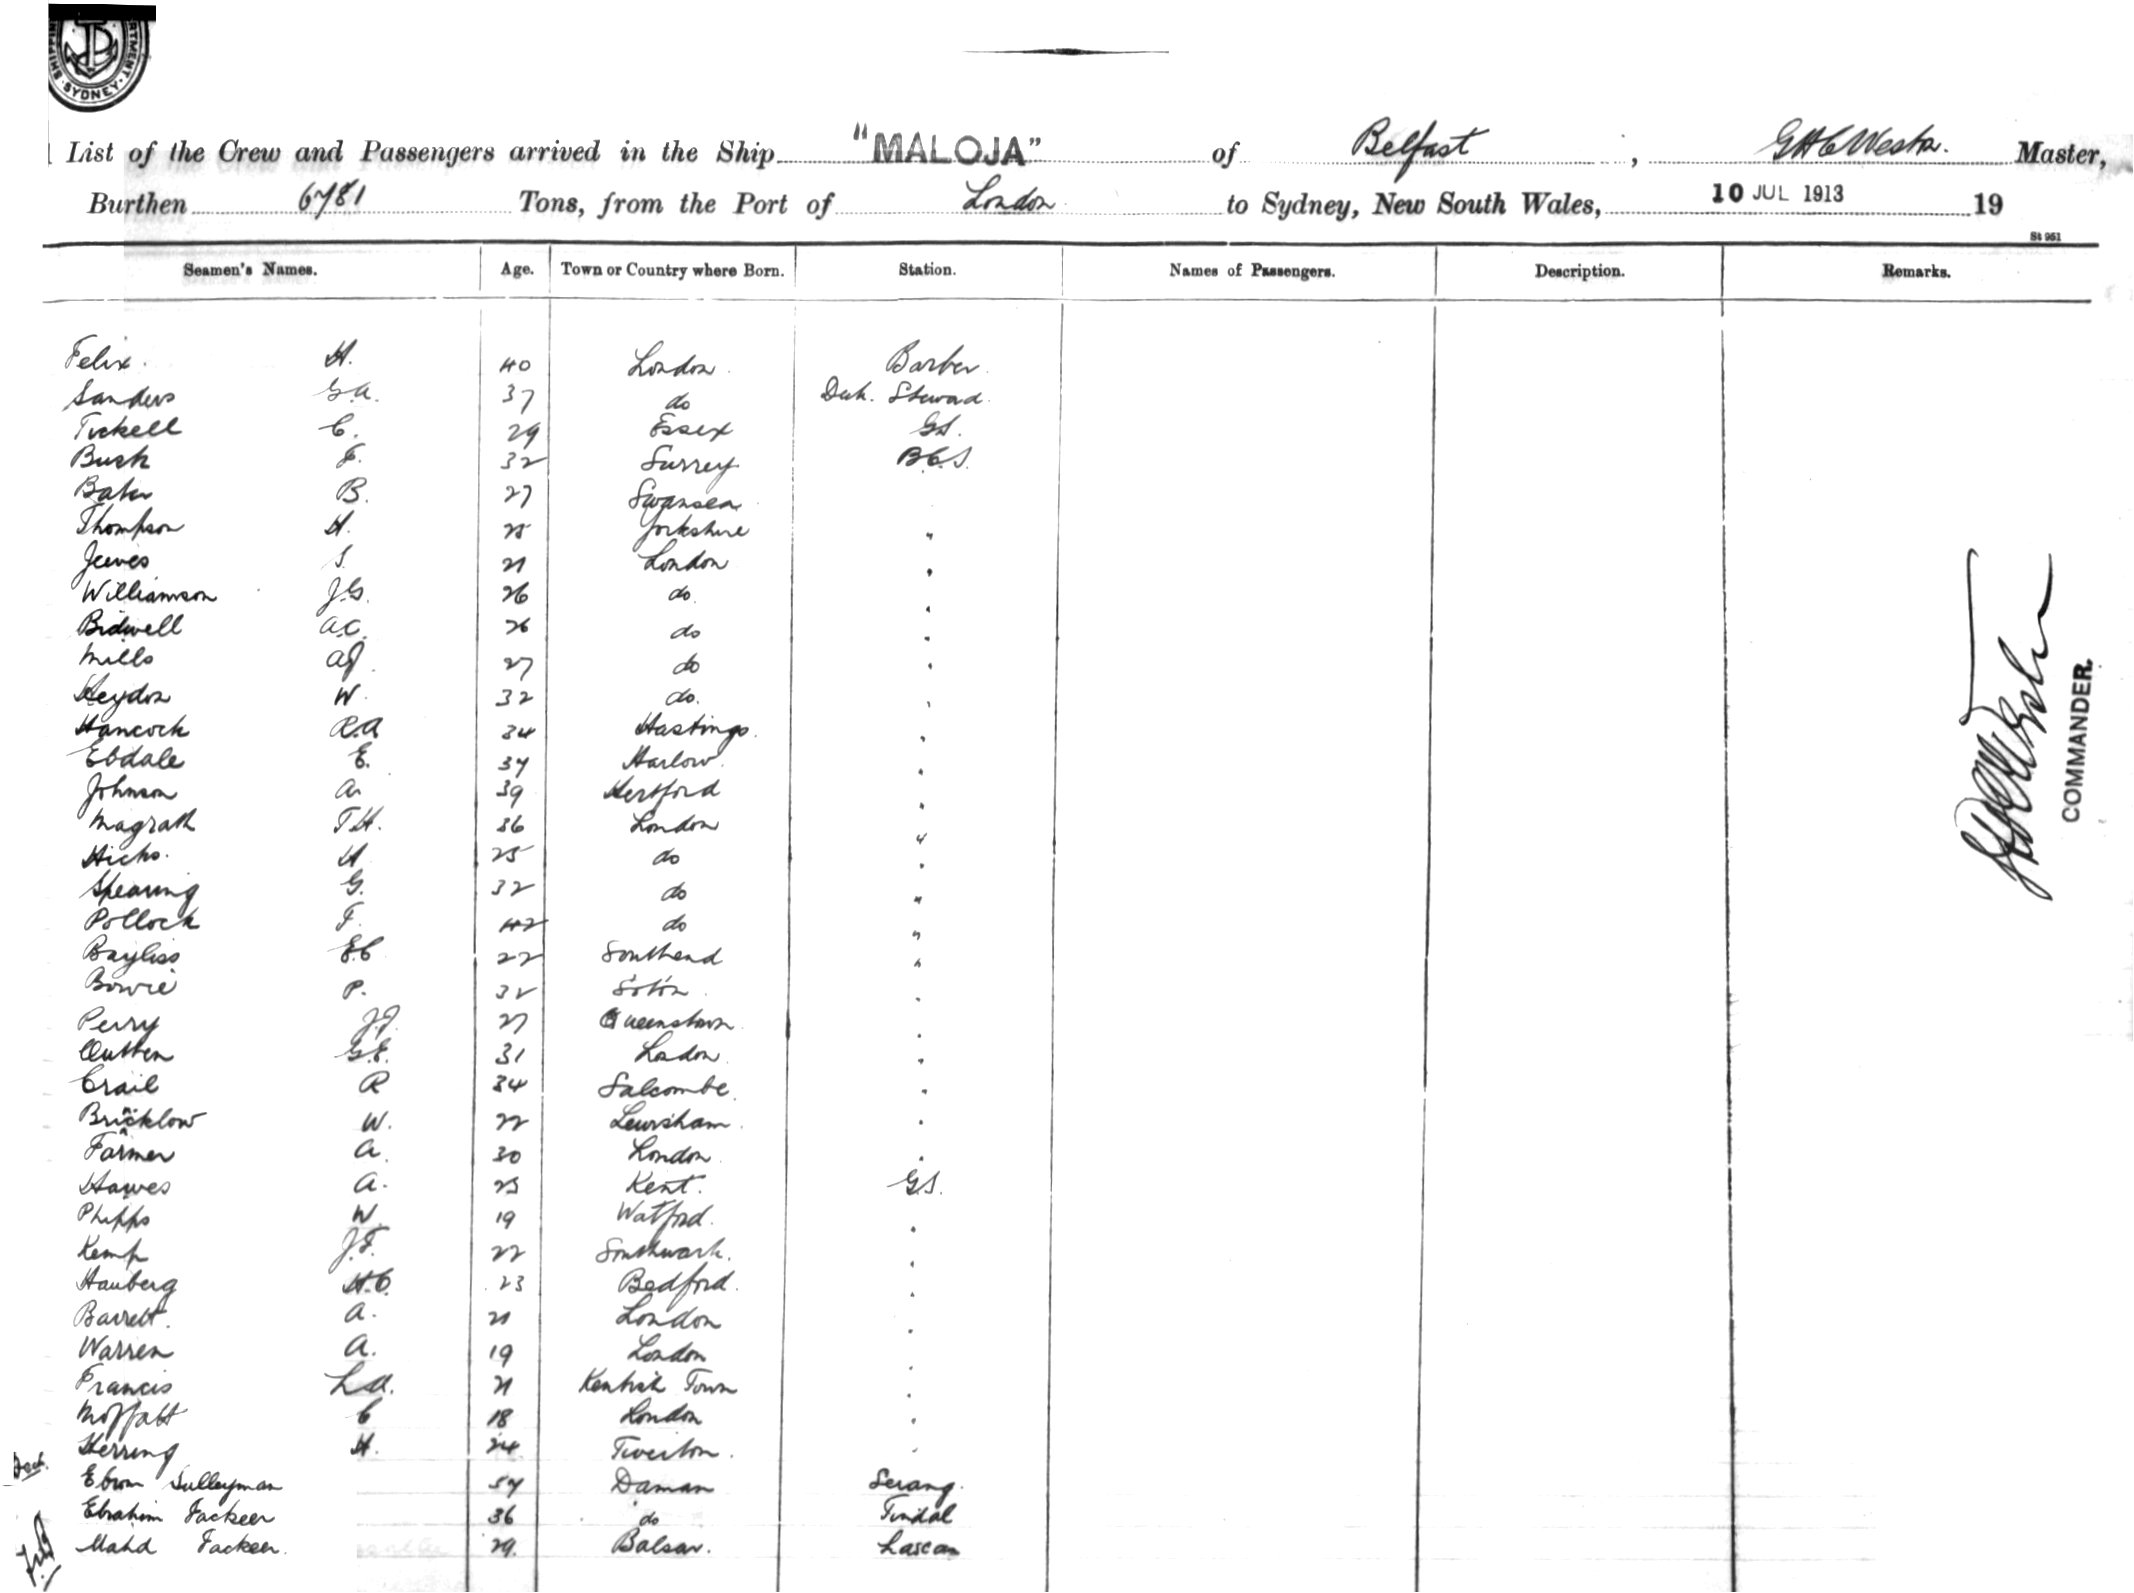 SYDNEY
List of the Crew and Passengers arrived in the Ship "MALOJA" of Belfast, Master,
Burthen 6781 Tons, from the Port of London to Sydney, New South Wales, 10 JUL 1913 19
St 951
Seamen's Names. Age. Town or Country where Born. Station. Names of Passengers. Description. Remarks.
Felix. H. 40 London. Barber.
Sanders G.A. 37 do Deck. Steward.
Tickell C. 29 Essex G.S.
Bush F. 32 Surrey B.C.S.
Baker B. 27 Swansea
Thompson H. 25 Yorkshire "
Jeeves S. 21 London "
Williamson J.G. 26 do. "
Bidwell A.C. 26 do "
Mills A.J. 27 do "
Heydon W. 32 do. "
Hancock R.A 34 Hastings. "
Ebdale E. 34 Harlow. "
Johnson A. 39 Hertford "
Magrath T.H. 36 London "
Hicks. H 25 do "
Spearing G. 32 do "
Pollock F. 42 do "
Bayliss E.C 22 Southend "
Bowie P. 32 Soton. "
Perry J.J. 27 Queenstown. "
Outten G.E. 31 London. "
Crail R 34 Salcombe. "
Bricklow W. 22 Lewisham. "
Farmer A. 30 London. "
Hawes A. 25 Kent. G.S.
Phipps W. 19 Watford. "
Kemp J.F. 22 Southwark. "
Hauberg H.C. 23 Bedford. "
Barrett. A. 21 London "
Warren A. 19 London "
Francis L.A. 21 Kentish Town "
Moffatt C 18 London "
Herring H. 24 Tiverton. "
Deck.
Ebram Sulleyman 54 Daman Serang.
Ebrahim Fackeer 36 do Tindal
Mahd Fackeer. 29. Balsar. Lascar
COMMANDER.